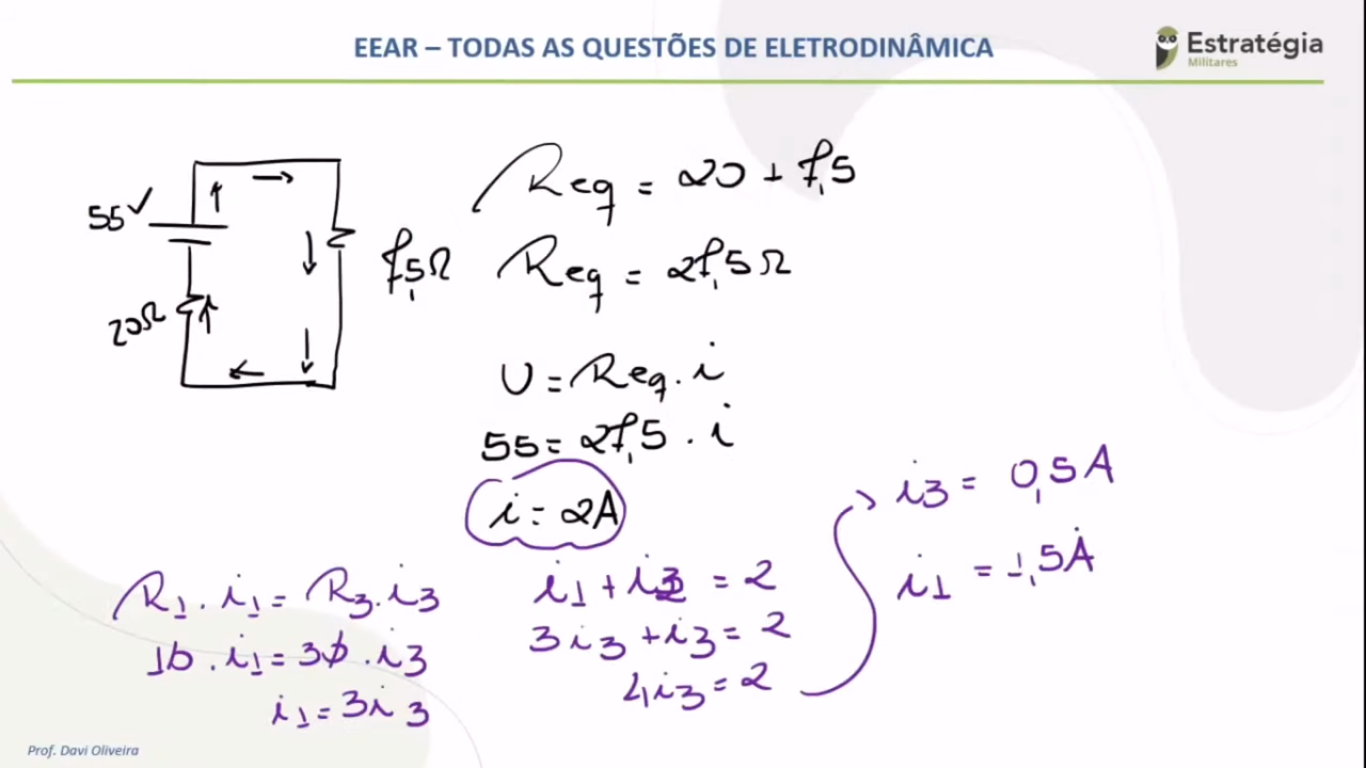 EEAR – TODAS AS QUESTÕES DE ELETRODINÂMICA
Estratégia
Militares
55V
20Ω
7,5Ω
Req = 20 + 7,5
Req = 27,5Ω
U = Req . i
55 = 27,5 . i
i = 2A
R1 . i1 = R3 . i3
10 . i1 = 30 . i3
i1 = 3i3
i1 + i3 = 2
3i3 + i3 = 2
4i3 = 2
i3 = 0,5A
i1 = 1,5A
Prof. Davi Oliveira